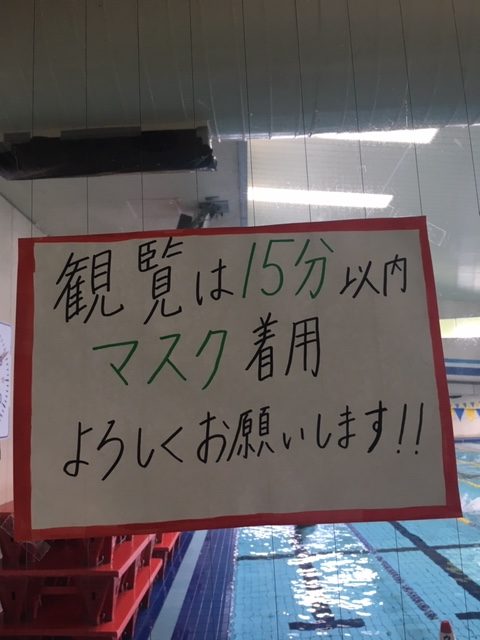 観覧は15分以内
マスク着用
よろしくお願いします!!